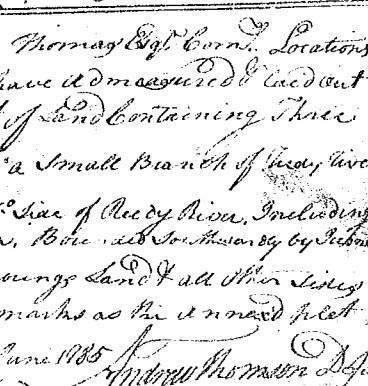 Thomas Esqr. Comr. Locations
have admeasured & laid out
of Land Containing Three
a Small Branch of Reedy River
Side of Reedy River, Including
Bounded Southwardly by
youngs Land & all other Sides
marks as the annexed plet
June 1785 Andrew Thomson D